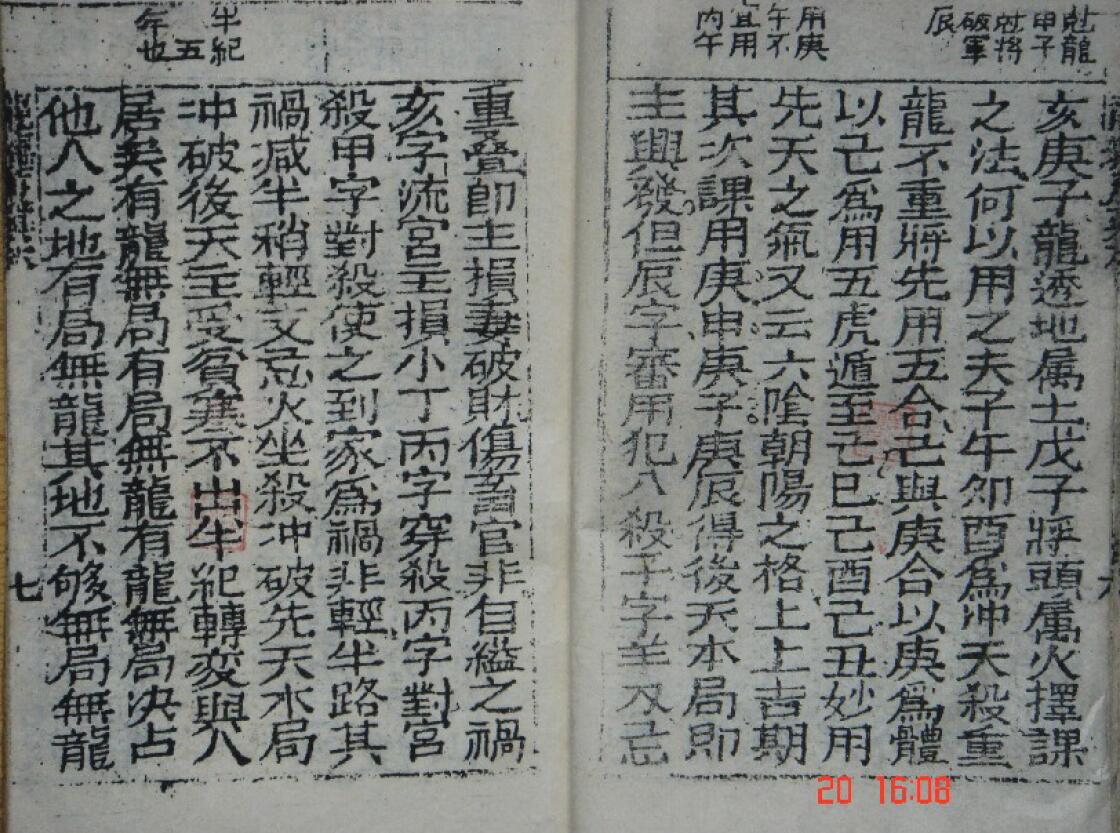 尅龍
甲子
尅將
破軍
辰
用庚
午不
宜用
丙午
亥庚子龍透地属土戊子將頭属火擇課
之法何以用之夫子午卯酉為冲天殺重
龍不重將先用五合己與庚合以庚為體
以己為用五虎遁至己巳己酉己丑妙用
先天之氣又云六陰朝陽之格上上吉期
其次課用庚申庚子庚辰得後天本局即
主興發但辰字審用犯八殺子字羊刃忌
半紀
五
年也
重疊即主損妻破財傷畜官非自縊之禍
亥字流宮主損小丁丙字穿殺丙字對宮
殺甲字對殺使之到家為禍非輕半路其
禍减半稍輕又忌火坐殺冲破先天水局
冲破後天主受貧寒不出半紀轉变與人
居矣有龍無局有局無龍有龍無局决占
他人之地有局無龍其地不够無局無龍
七
20 16:08